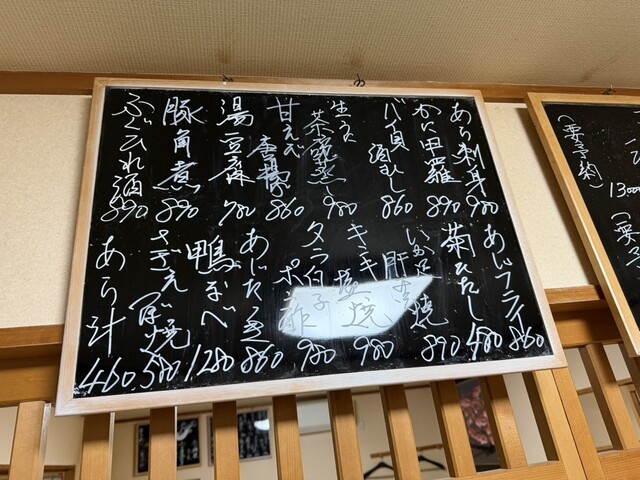 あら刺身 980
かに甲羅 890
バイ貝酒むし 860
生うに茶碗蒸し 980
甘えび唐揚 860
湯豆腐 780
豚角煮 890
ふぐひれ酒 890
あじフライ 860
菊ひたし 480
いか肝焼 890
キンキ塩焼 980
タラ白子ポン酢 980
あじたたき 860
鴨なべ 1,280
さざえ焼 580
あら汁 460
(要予約)
1300
(要予